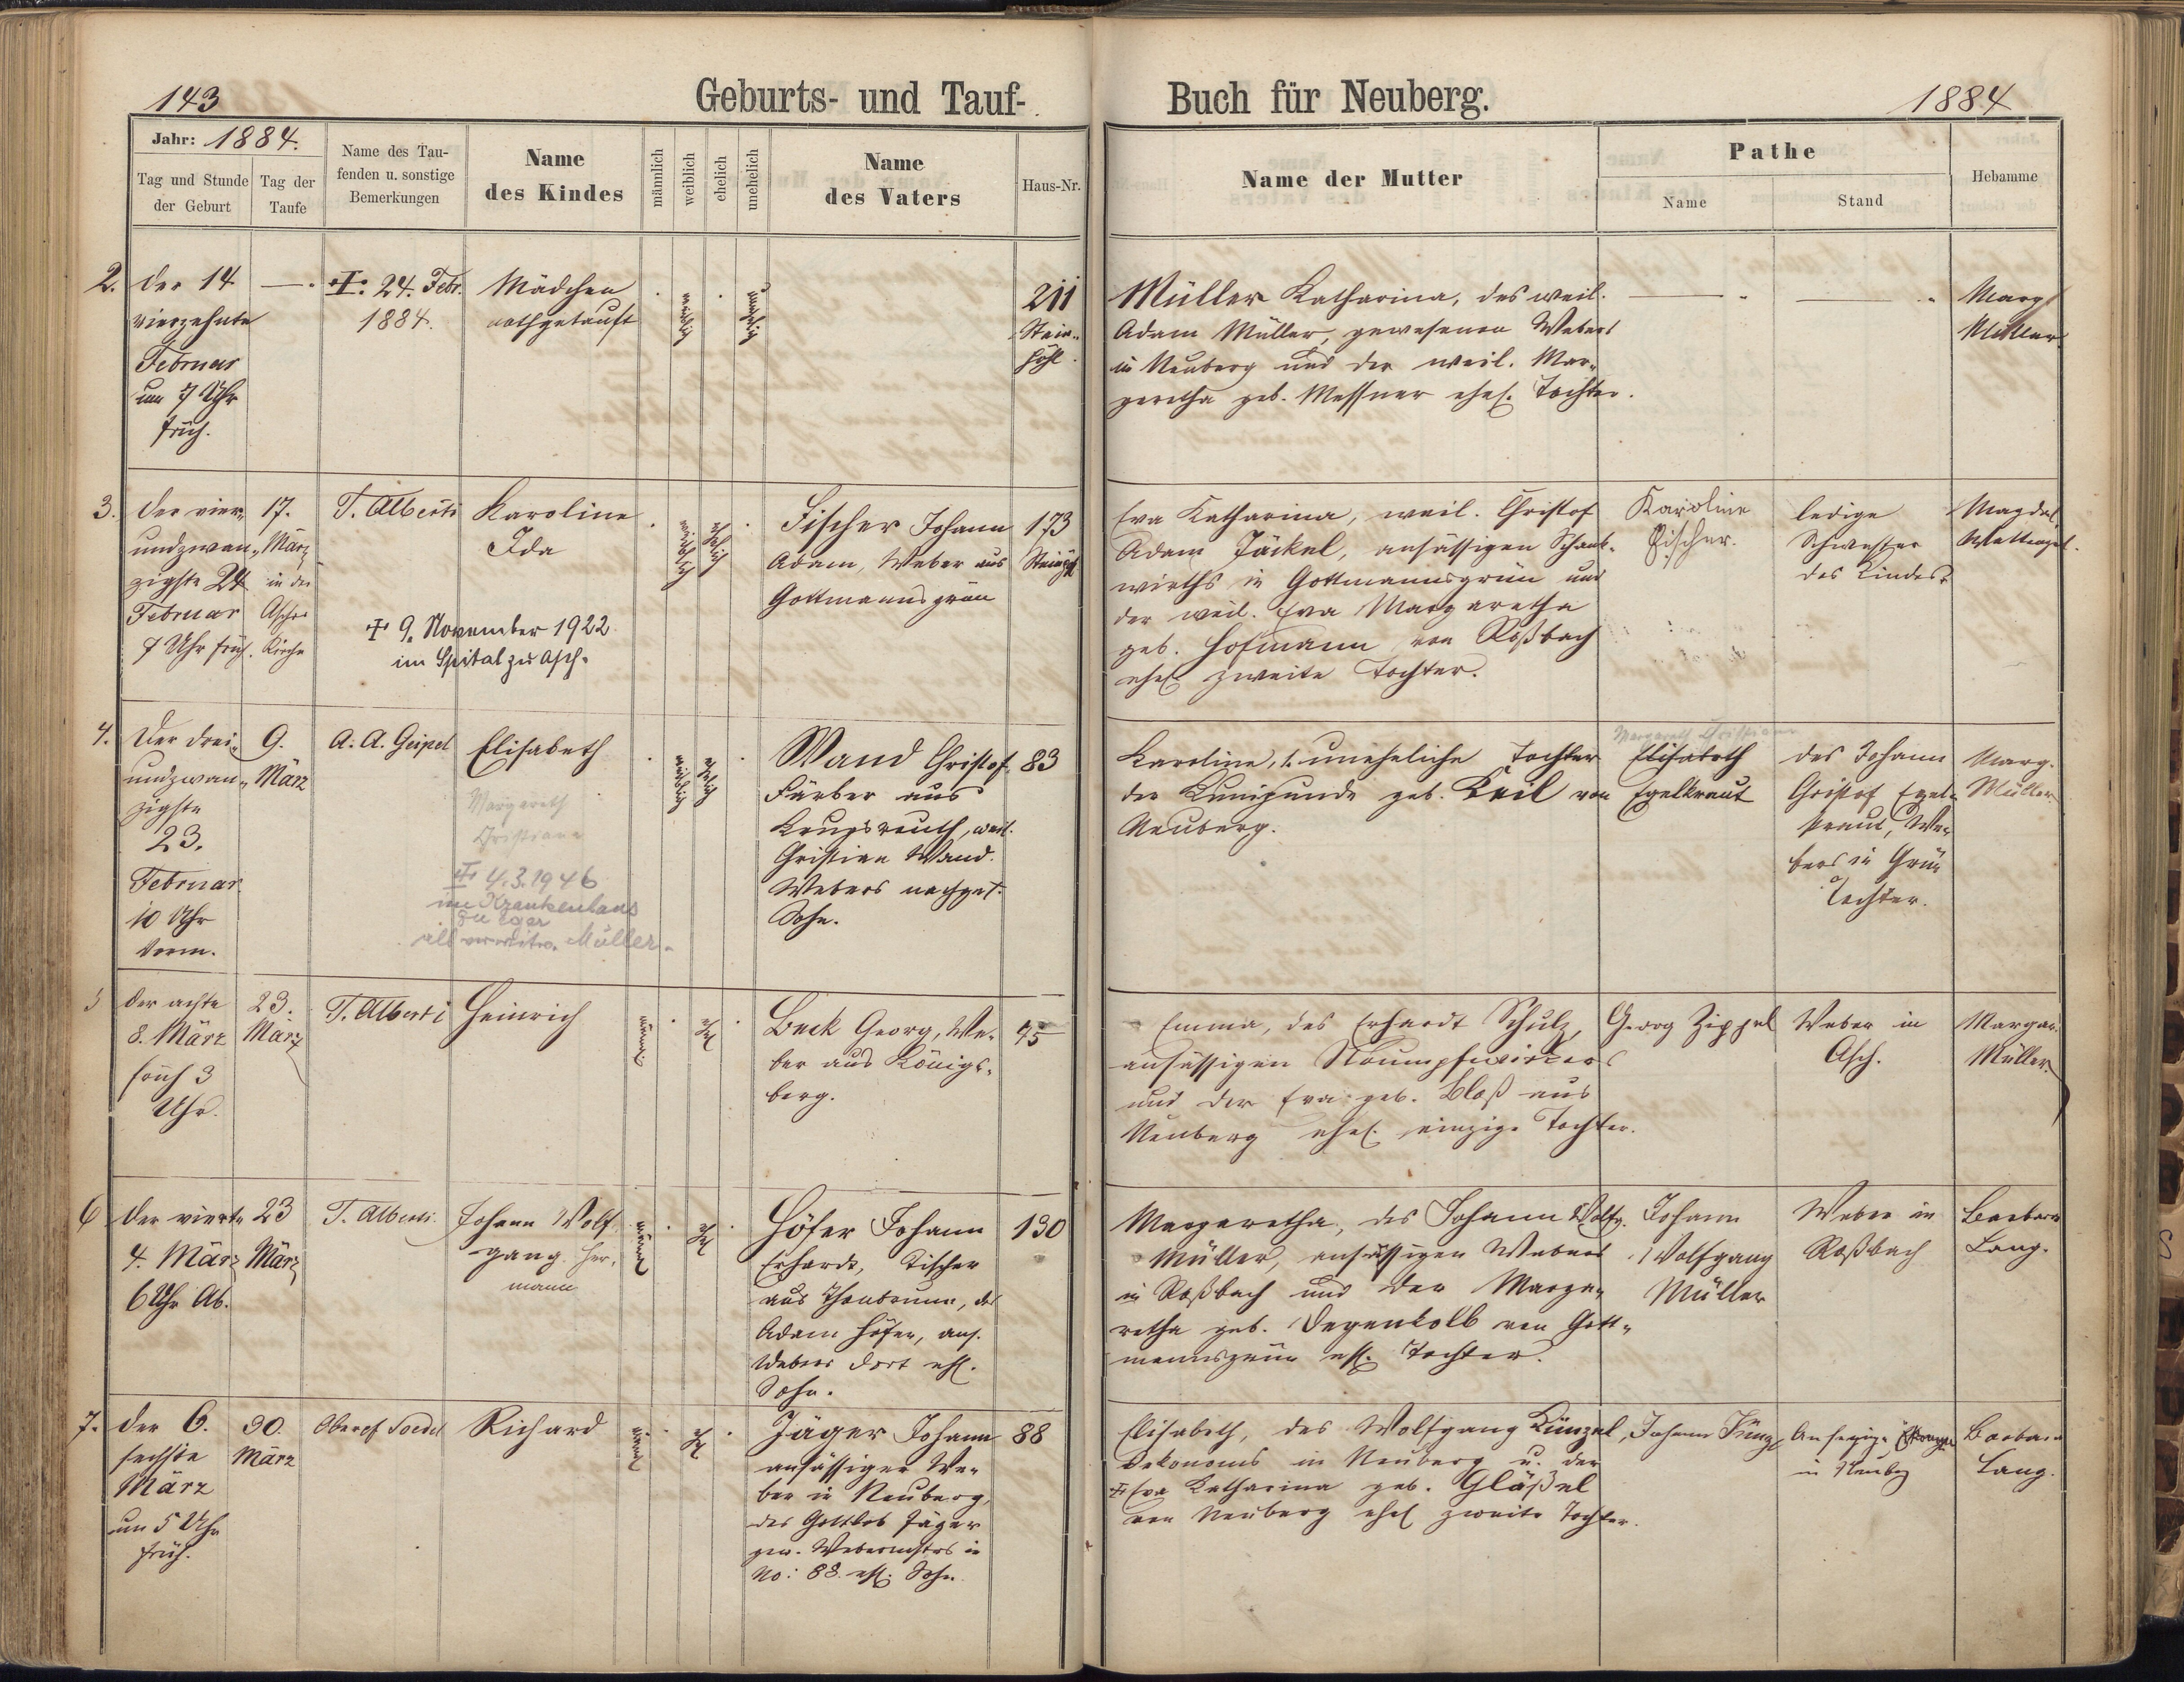 143
Geburts- und Tauf-
Buch für Neuberg.
1884
Jahr: 1884.
Tag und Stunde
der Geburt
Tag der
Taufe
Name des Tau-
fenden u. sonstige
Bemerkungen
Name
des Kindes
männlich
weiblich
ehelich
unehelich
Name
des Vaters
Haus-Nr.
Name der Mutter
Pathe
Name
Stand
Hebamme
2.
der 14
vierzehnte
Februar
um 7 Uhr
früh.
24. Febr.
1884.
Mädchen
nothgetauft
weiblich
unehelich
211
Stein-
pöhl.
Müller Katharina, des weil.
Adam Müller, gewesenen Webers
in Neuberg und der weil. Mar-
garetha geb. Messner ehel. Tochter.
Marg
Müller
3.
der vier-
undzwan-
zigste 24
Februar
7 Uhr früh.
17.
März
in der
Ascher
Kirche
T. Alberti
Karoline
Ida
9. November 1922
im Spital zu Asch.
weiblich
ehelich
Fischer Johann
Adam, Weber aus
Gottmannsgrün
173
Eva Katharina, weil. Christof
Adam Jäckel, ansässigen Schank-
wirths in Gottmannsgrün und
der weil. Eva Margaretha
geb. Hofmann von Roßbach
ehel zweite Tochter.
Karoline
Fischer.
ledige
Schwester
des Kindes
Magdal
4.
Der drei-
undzwan-
zigste
23.
Februar
10 Uhr
Vorm.
9.
März
A. A. Geipel
Elisabeth
Margareth
Christiana
4.3.1946
im Krankenhaus
zu Eger
Müller.
weiblich
ehelich
Wand Christof
Färber aus
Krugsreuth, weil.
Christian Wand.
Webers nachgel.
Sohn.
83
Karoline, 1. uneheliche Tochter
der Kunigunde geb. Keil von
Neuberg.
Margareth Christiana
Elisabeth
Egelkraut
des Johann
Christof Egel-
kraut, We-
bers in Grün
Tochter.
Marg.
Müller
5
der achte
8. März
früh 3
Uhr.
23.
März
T. Alberti
Heinrich
männl.
ehel
Beck Georg, We-
ber aus Königs-
berg.
75
Emma, des Erhardt Schulz,
ansässigen Strumpfwirkers
und der Eva geb. Bloß aus
Neuberg ehel. einzige Tochter.
Georg Zippel
Weber in
Asch.
Margar.
Müller.
6
der vierte
4. März
6 Uhr Ab.
23
März
T. Alberti.
Johann Wolf
gang. Her-
mann
männl
ehel
Höfer Johann
Erhardt, Tischer
aus Thonbrunn, des
Adam Höfer, ans.
Webers dort ehl.
Sohn.
130
Margaretha, des Johann Wolfg.
Müller, ansässigen Webers
in Roßbach und der Marga-
retha geb. Degenkolb von Gott-
mannsgrün ehl. Tochter.
Johann
Wolfgang
Müller
Weber in
Roßbach
Barbara
Lang.
7.
der 6.
sechste
März
um 5 Uhr
früh.
30.
März
Richard
männl
ehel
Jäger Johann
ansässiger We-
ber in Neuberg,
des Gottlob Jäger
gew. Webermstrs in
No: 88. ehl. Sohn.
88
Elisabeth, des Wolfgang Künzel,
Oekonoms in Neuberg u. der
Eva Katharina geb. Gläßel
von Neuberg ehel zweite Tochter.
Johann Künzl
in Neubg
Barbara
Lang.